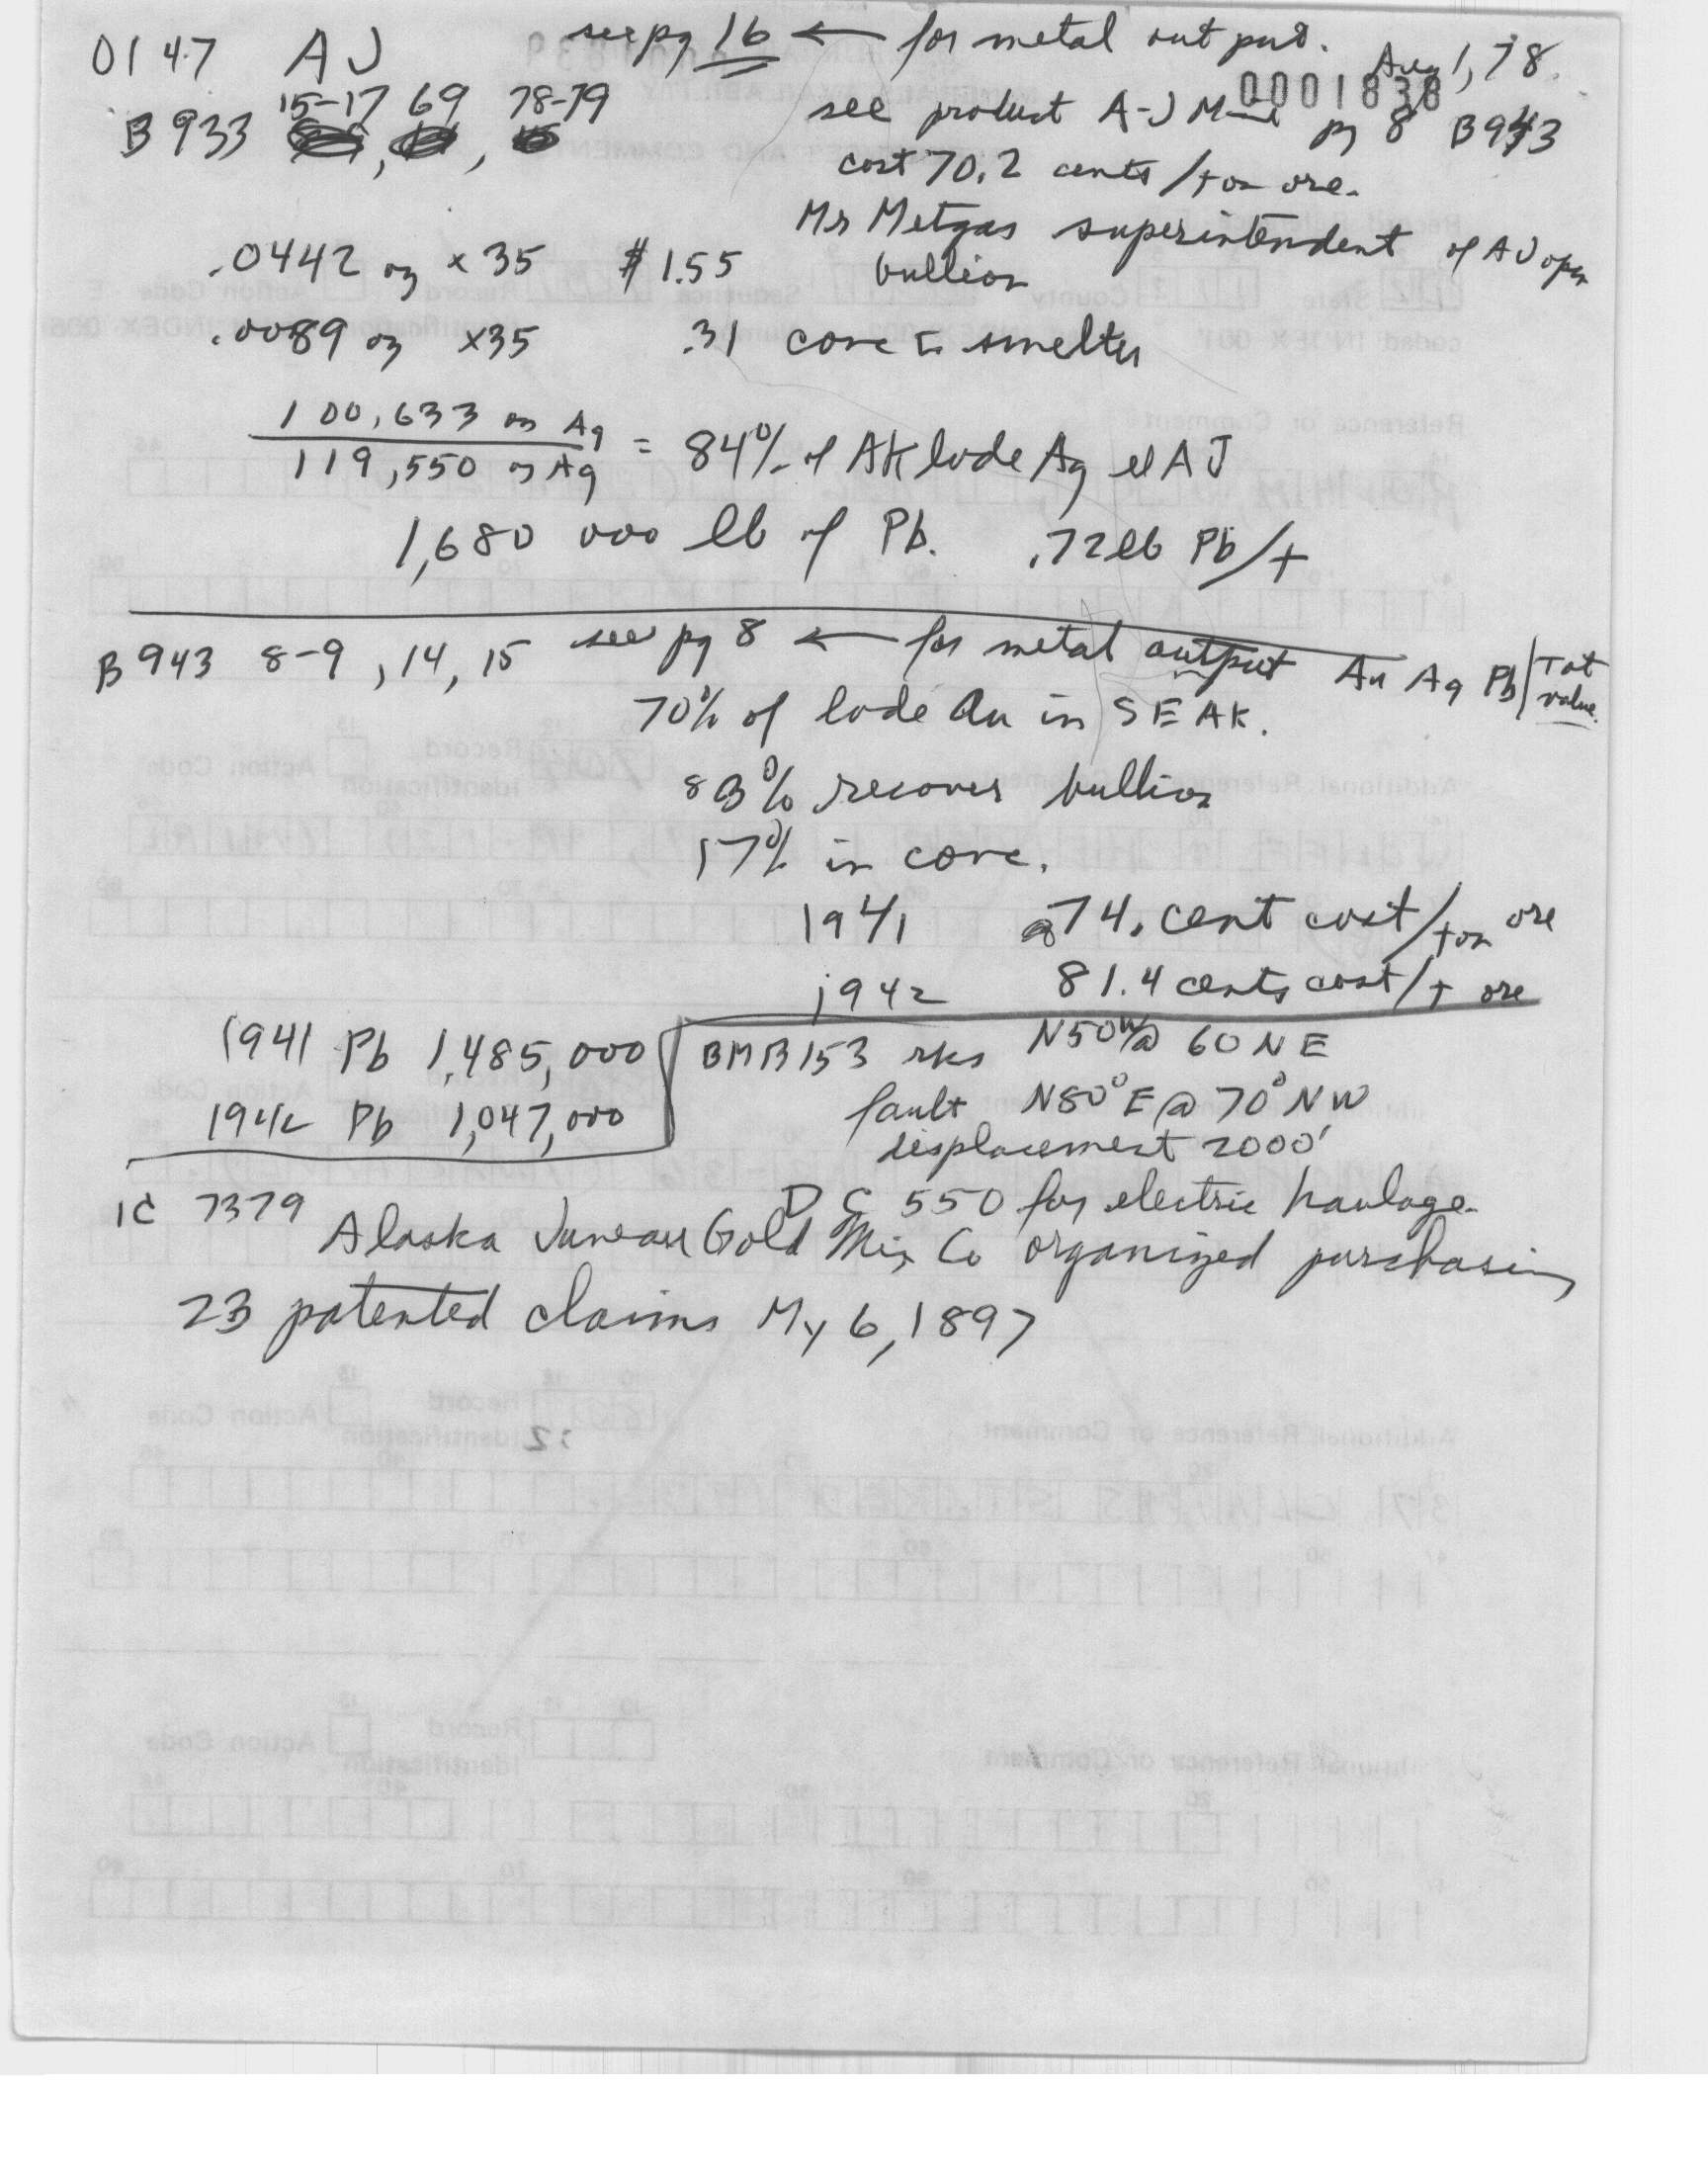 0147 AJ see pg 16 ← for metal output. Aug 1, 78
0001838
B933 15-17 69 78-79 see product A-J Mine pg 8 B943
cost 70.2 cents/ton ore.
Mr Metzgas superintendent of AJ oper
.0442 oz x 35 $1.55 bullion
.0089 oz x35 .31 conc to smelter
100,633 oz Ag
119,550 oz Ag = 84% of AK lode Ag el AJ
1,680 000 lb of Pb. .72 lb Pb/t
B943 8-9, 14, 15 see pg 8 ← for metal output Au Ag Pb/Tot value.
70% of lode Au in SEAK.
83% recover bullion
17% in conc.
1941 74. cent cost/ton ore
1942 81.4 cents cost/t ore
1941 Pb 1,485,000 BMB153 rks N50W@ 60NE
fault N80°E@ 70°NW
1942 Pb 1,047,000
displacement 2000'
IC 7379 DC 550 for electric haulage.
Alaska Juneau Gold Min Co organized purchasing
23 patented claims My 6, 1897